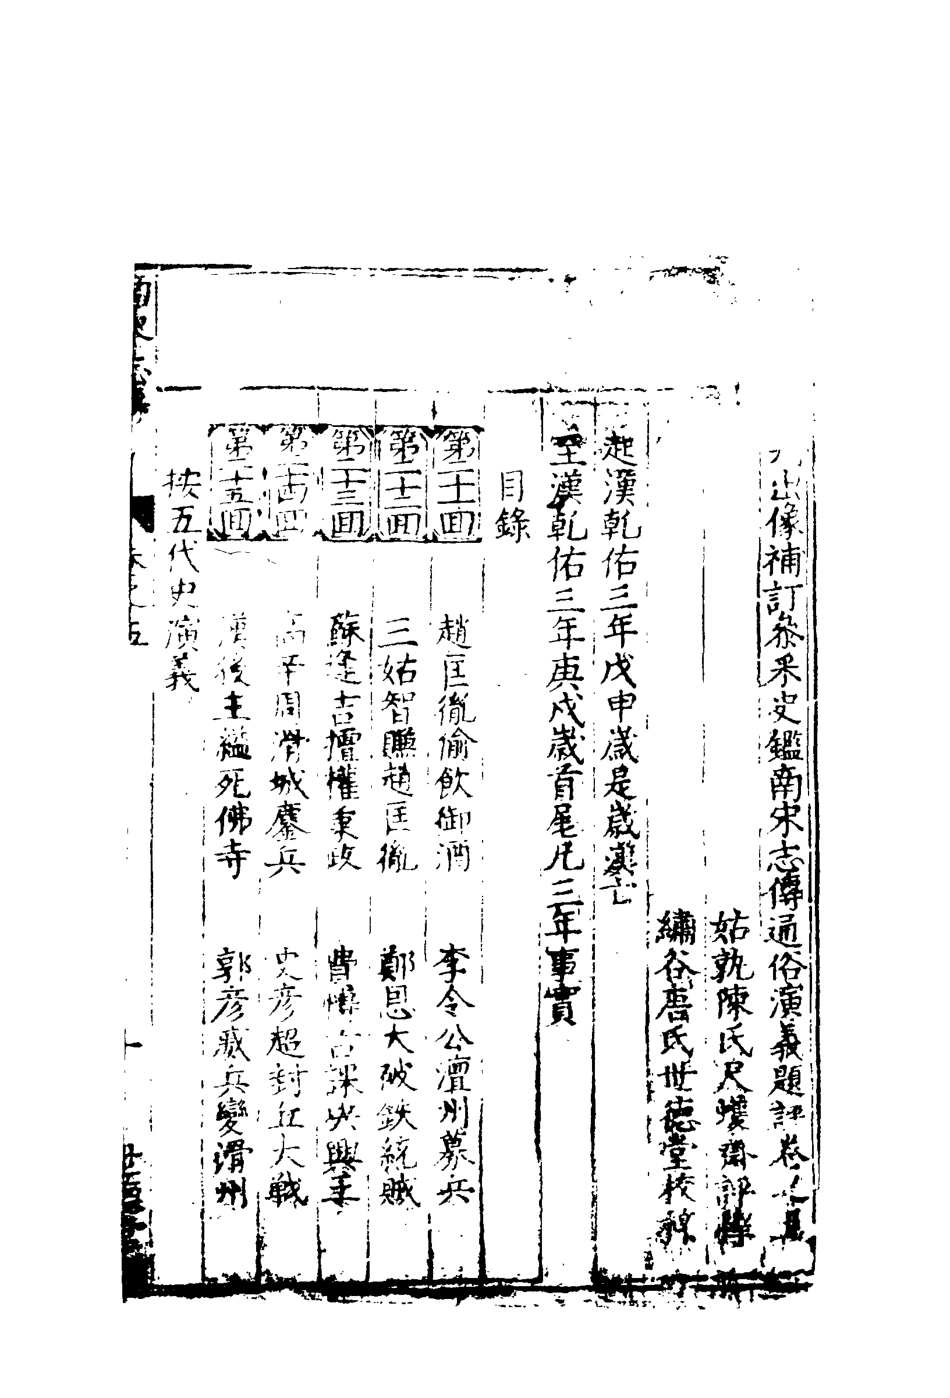 出像補訂叅采史鑑南宋志傳通俗演義題評卷之五
姑孰陳氏尺蠖齋評釋
繡谷唐氏世德堂校
起漢乾佑三年戊申歲是歲漢亡
至漢乾佑三年庚戌歲首尾凡三年事實
目錄
第二十一回 趙匡胤偷飲御酒 李令公澶州募兵
第二十二回 三姑智賺趙匡胤 鄭恩大破鉄統賊
第二十三回 蘇逢吉擅權秉政 費博古課火興王
第二十四回 高平周滑城鏖兵 史彥超封丘大戰
第二十五回 漢後主縊死佛寺 郭彥威兵變滑州
按五代史演義
南宋志傳
卷之五